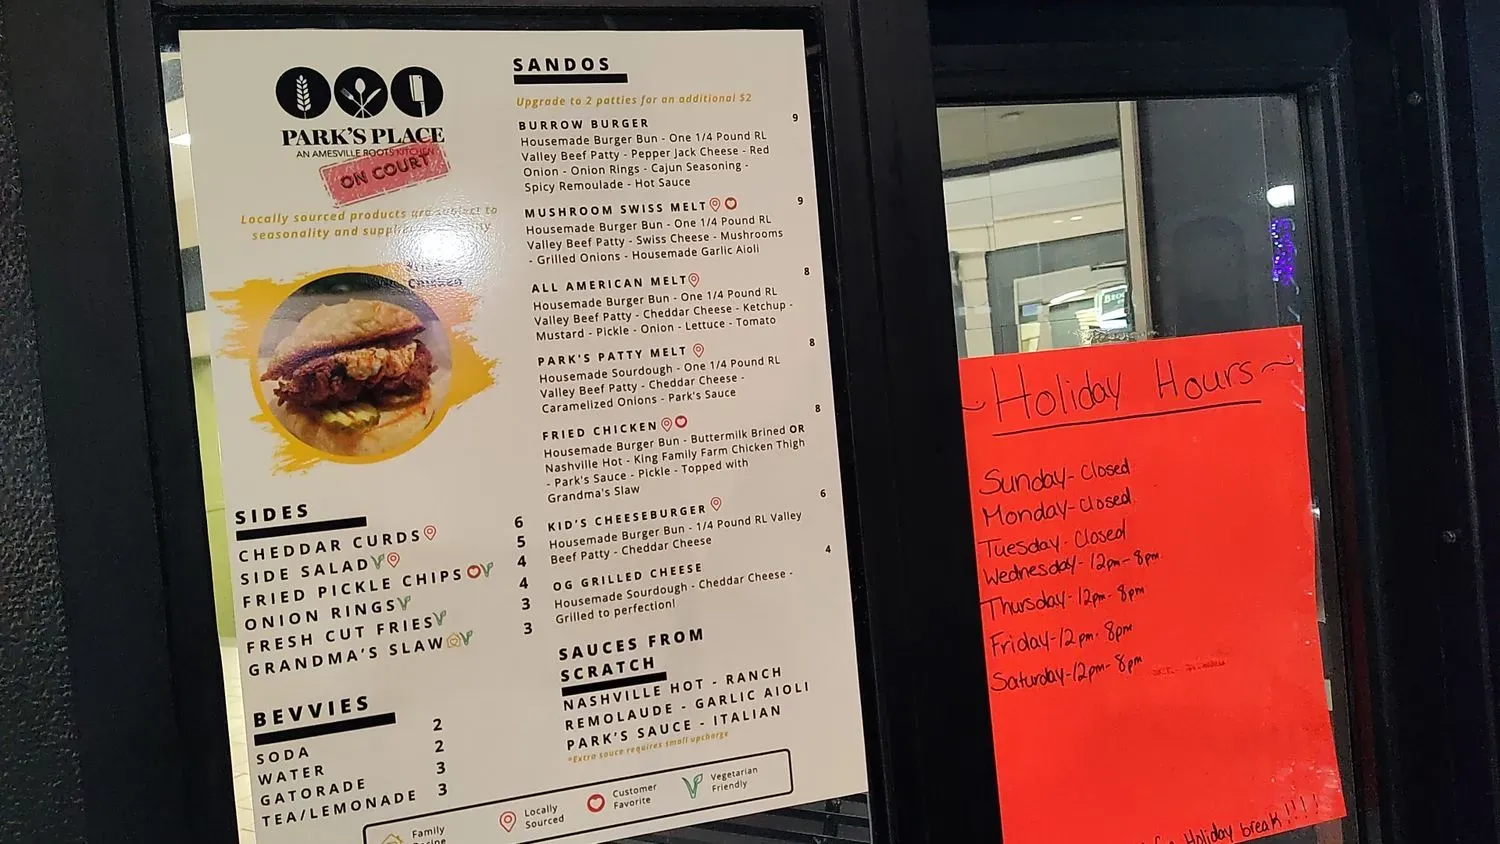 PARK'S PLACE
AN AMESVILLE ROOTS KITCHEN
ON COURT
Locally sourced products are subject to
seasonality and
Chicken
SIDES
CHEDDAR CURDS 6
SIDE SALAD 5
FRIED PICKLE CHIPS 4
ONION RINGS 4
FRESH CUT FRIES 3
GRANDMA'S SLAW 3
BEVVIES
SODA 2
WATER 2
GATORADE 3
TEA/LEMONADE 3
SANDOS
Upgrade to 2 patties for an additional $2
BURROW BURGER 9
Housemade Burger Bun - One 1/4 Pound RL
Valley Beef Patty - Pepper Jack Cheese - Red
Onion - Onion Rings - Cajun Seasoning -
Spicy Remoulade - Hot Sauce
MUSHROOM SWISS MELT 9
Housemade Burger Bun - One 1/4 Pound RL
Valley Beef Patty - Swiss Cheese - Mushrooms
- Grilled Onions - Housemade Garlic Aioli
ALL AMERICAN MELT 8
Housemade Burger Bun - One 1/4 Pound RL
Valley Beef Patty - Cheddar Cheese - Ketchup -
Mustard - Pickle - Onion - Lettuce - Tomato
PARK'S PATTY MELT 8
Housemade Sourdough - One 1/4 Pound RL
Valley Beef Patty - Cheddar Cheese -
Caramelized Onions - Park's Sauce
FRIED CHICKEN 8
Housemade Burger Bun - Buttermilk Brined OR
Nashville Hot - King Family Farm Chicken Thigh
- Park's Sauce - Pickle - Topped with
Grandma's Slaw
KID'S CHEESEBURGER 6
Housemade Burger Bun - 1/4 Pound RL Valley
Beef Patty - Cheddar Cheese
OG GRILLED CHEESE 4
Housemade Sourdough - Cheddar Cheese -
Grilled to perfection!
SAUCES FROM
SCRATCH
NASHVILLE HOT - RANCH
REMOLAUDE - GARLIC AIOLI
PARK'S SAUCE - ITALIAN
*Extra sauce requires small upcharge
Family
Locally
Sourced
Customer
Favorite
Vegetarian
Friendly
~Holiday Hours~
Sunday- Closed
Monday- Closed
Tuesday- Closed
Wednesday- 12pm-8pm
Thursday- 12pm-8pm
Friday- 12pm-8pm
Saturday- 12pm-8pm
Holiday break!!!!